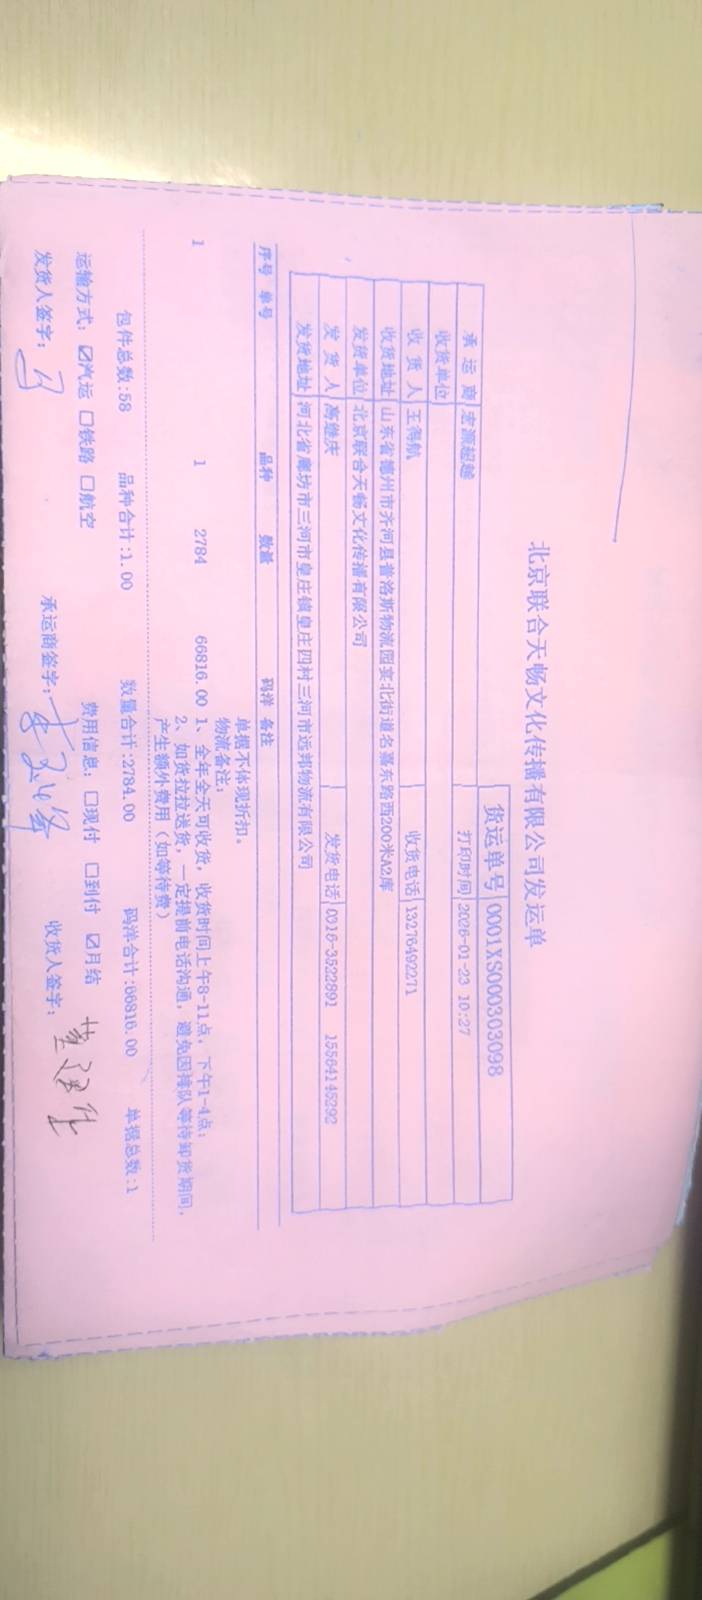 北京联合天畅文化传播有限公司发运单
货运单号 0001XS000303098
承运商 宏源超越 打印时间 2026-01-23 10:27
收货单位
收货人 王得航 收货电话 13276492271
收货地址 山东省德州市齐河县普洛斯物流园晏北街道名嘉东路西200米A2库
发货单位 北京联合天畅文化传播有限公司
发货人 高继庆 发货电话 0316-3522891 15564145292
发货地址 河北省廊坊市三河市皇庄镇皇庄四村三河市远邦物流有限公司
序号 单号 品种 数量 码洋 备注
单据不体现折扣。
物流备注:
1 1 2784 66816.00 1、全年全天可收货,收货时间上午8-11点,下午1-4点;
2、如货拉拉送货,一定提前电话沟通,避免因排队等待卸货期间,
产生额外费用(如等待费)
包件总数:58 品种合计:1.00 数量合计:2784.00 码洋合计:66816.00 单据总数:1
运输方式: ☑汽运 ☐铁路 ☐航空 费用信息: ☐现付 ☐到付 ☑月结
发货人签字: 承运商签字: 收货人签字: